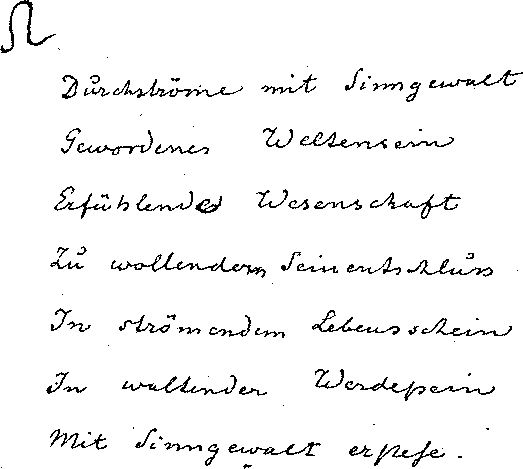 ♌
Durchströme mit Sinngewalt
Gewordenes Weltensein
Erfühlende Wesenschaft
Zu wollendem Seinentschluss
In strömendem Lebensschein
In waltender Werdepein
Mit Sinngewalt erstehe.